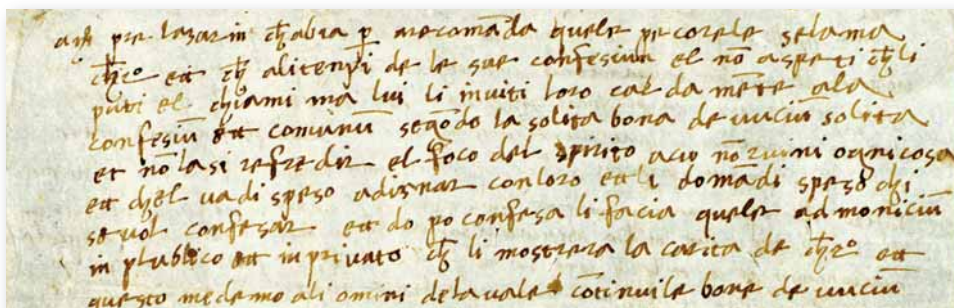 pre lazarin ch abia p arecomāda quele pecorele selama
chro ett ch alitenpi de le sue confesiun el nō aspeti chli
puti el chiami ma lui li inviti loro caldamēte ala
confesiun ett comuniun segōdo la solita bona devuciun solita
et nō lasi refredir el foco del spirito aciu nō ruini ognicosa
ett chel vadi speso adisnar conloro ett li domadi speso chi
se vol confesar ett dopo confesa li facia quele admoniciun
in plublico ett inprivato ch li mostrera la carita de chro ett
questo medemo ali omini delavale cōtinuile bone devuciun